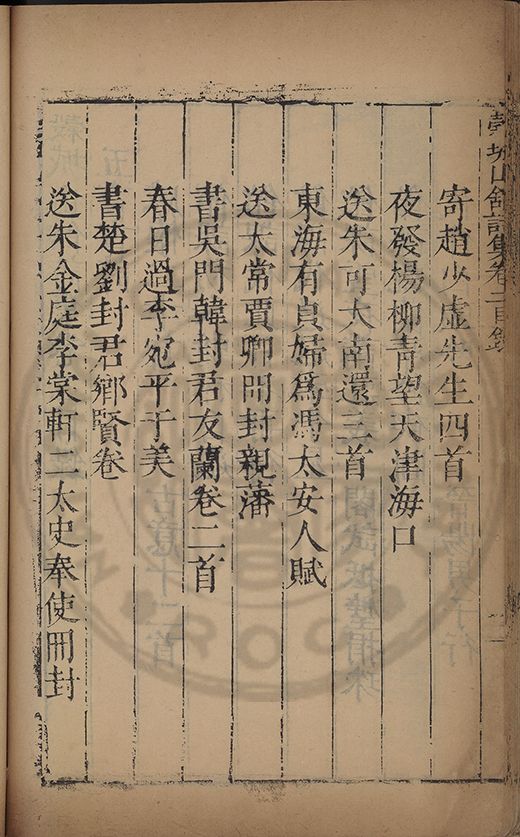 穀城山館詩集卷二目錄
寄趙少虛先生四首
夜發楊柳青望天津海口
送朱可大南還三首
東海有貞婦爲馮太安人賦
送太常賈卿冊封親藩
書吳門韓封君友蘭卷二首
春日過李宛平于美
書楚劉封君鄉賢卷
送朱金庭李棠軒二太史奉使冊封